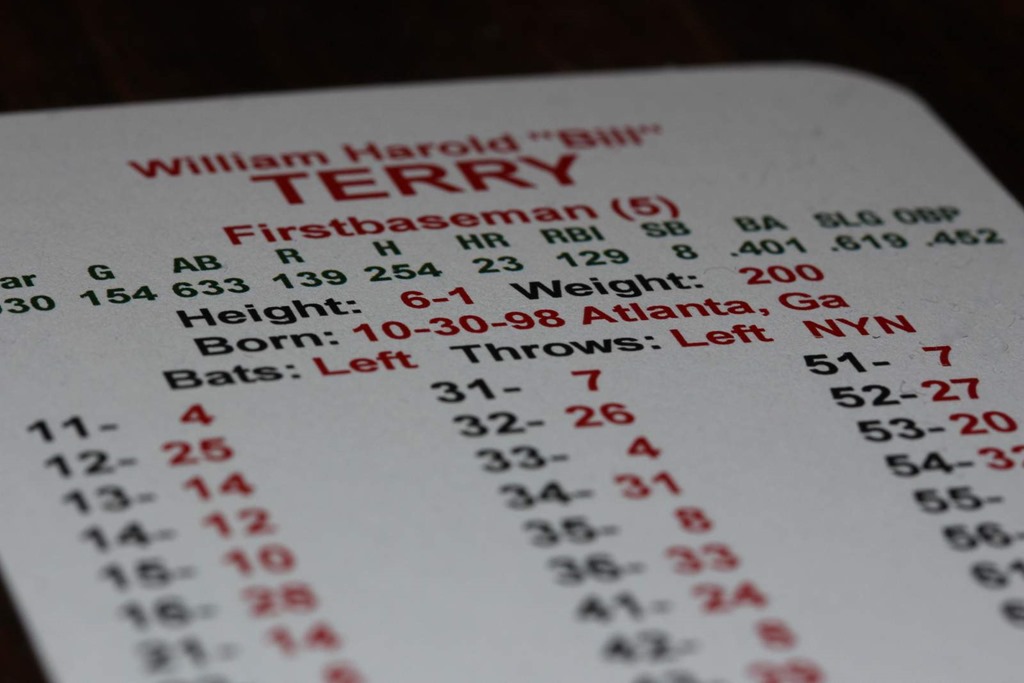 William Harold "Bill"
TERRY
Firstbaseman (5)
ar G AB R H HR RBI SB BA SLG OBP
930 154 633 139 254 23 129 8 .401 .619 .452
Height: 6-1 Weight: 200
Born: 10-30-98 Atlanta, Ga
Bats: Left Throws: Left NYN
11- 4 31- 7 51- 7
12- 25 32- 26 52- 27
13- 14 33- 4 53- 20
14- 12 34- 31 54-
15- 10 35- 8 55-
16- 28 36- 33 56-
21- 14 41- 24
42- 8